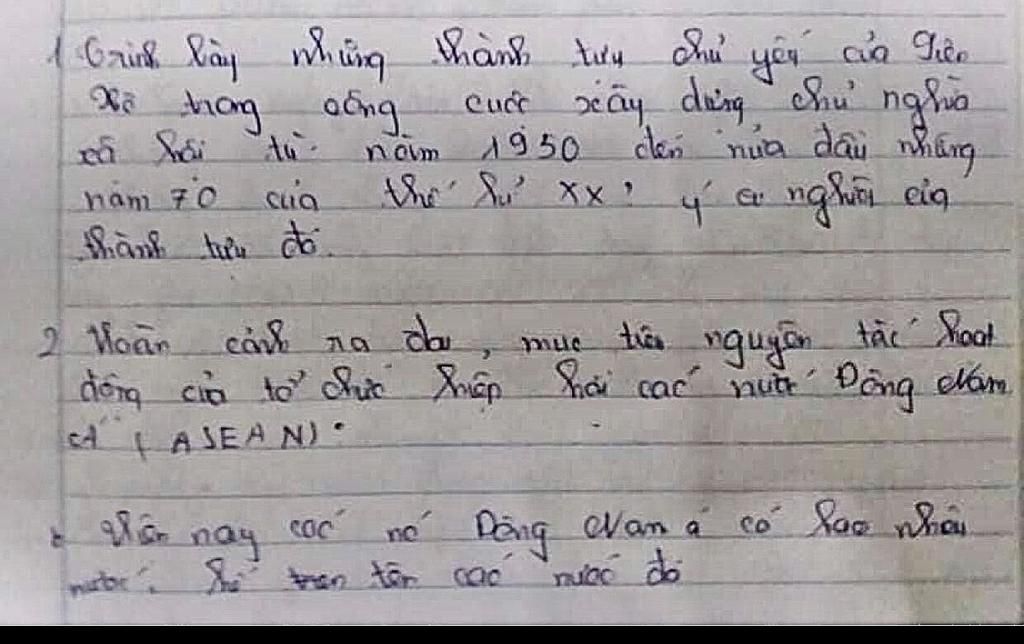 1 Trình bày những thành tựu chủ yếu của Liên
Xô trong công cuộc xây dựng chủ nghĩa
xã hội từ năm 1950 đến nửa đầu những
năm 70 của thế kỉ XX? ý nghĩa của
thành tựu đó.
2 Hoàn cảnh ra đời, mục tiêu nguyên tắc hoạt
động của tổ chức hiệp hội các nước Đông Nam
Á (ASEAN).
Hiện nay các nó Đông Nam á có bao nhiêu
nước. kể tên các nước đó